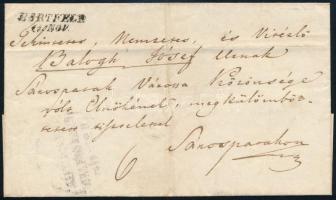 BARTFELD
NOV.
Tekintetes, Nemzetes, és Vitézlő
Balogh Jósef Urnak
Sárospatak Városa Közönsége
Elnökének, megkülömböz-
tisztelettel
6
Sárospatakon